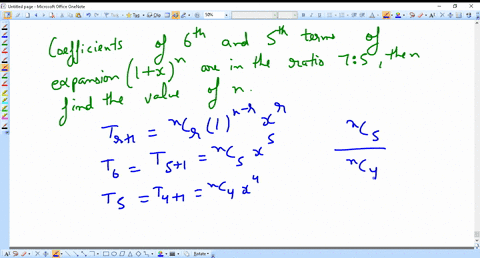 Page1 - Microsoft Office OneNote
50%
Coefficients of 6th and 5th terms of
expansion (1+x)^n are in the ratio 7:5, then
find the value of n.
T_{r+1} = ^nC_r (1)^{n-r} x^r
T_6 = T_{5+1} = ^nC_5 x^5
T_5 = T_{4+1} = ^nC_4 x^4
^nC_5
^nC_4
Rotate